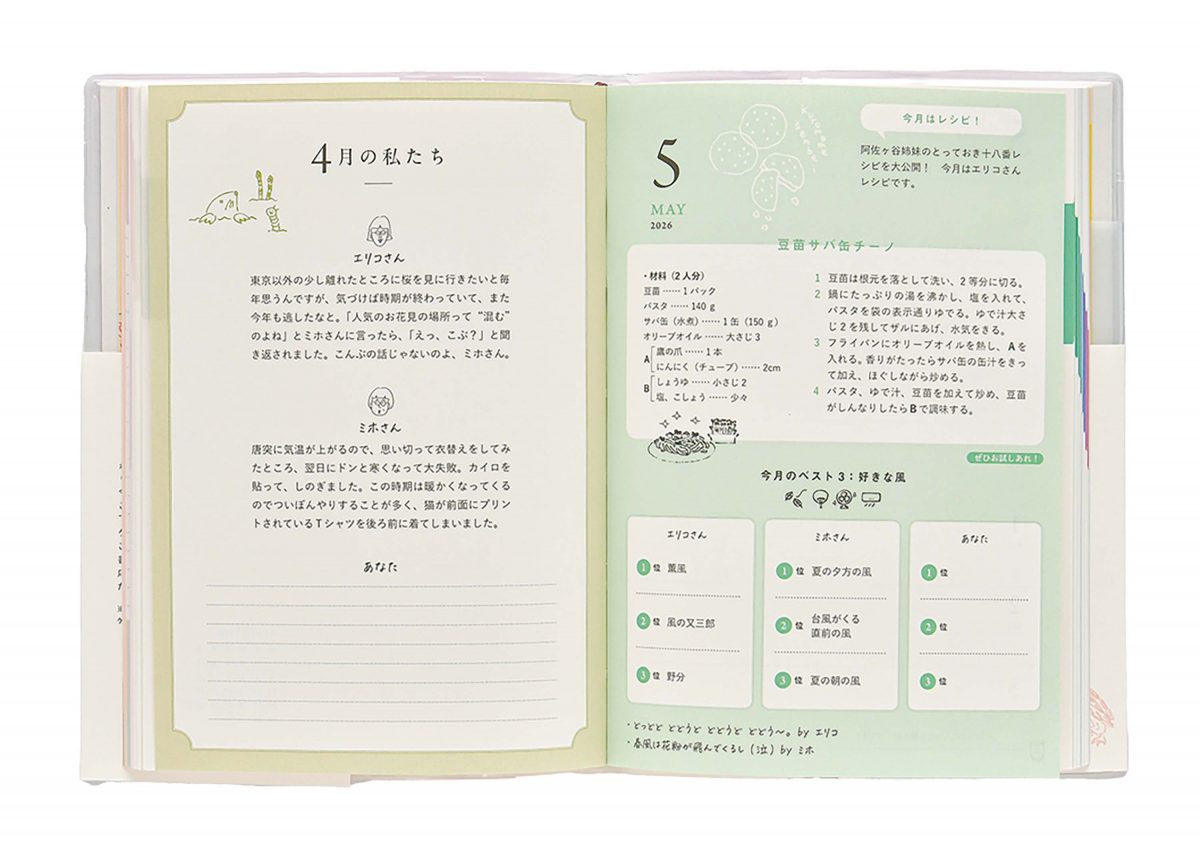 4月の私たち
エリコさん
東京以外の少し離れたところに桜を見に行きたいと毎
年思うんですが、気づけば時期が終わっていて、また
今年も逃したなと。「人気のお花見の場所って“混む”
のよね」とミホさんに言ったら、「えっ、こぶ？」と聞
き返されました。こんぶの話じゃないのよ、ミホさん。
ミホさん
唐突に気温が上がるので、思い切って衣替えをしてみ
たところ、翌日にドンと寒くなって大失敗。カイロを
貼って、しのぎました。この時期は暖かくなってくる
のでついぼんやりすることが多く、猫が前面にプリン
トされているTシャツを後ろ前に着てしまいました。
あなた
5
MAY
2026
今月はレシピ！
阿佐ヶ谷姉妹のとっておき十八番レ
シピを大公開！　今月はエリコさん
レシピです。
豆苗サバ缶チーノ
・材料（2人分）
豆苗……1パック
パスタ……140g
サバ缶（水煮）……1缶（150g）
オリーブオイル……大さじ3
A 鷹の爪……1本
にんにく（チューブ）……2cm
B しょうゆ……小さじ2
塩、こしょう……少々
1 豆苗は根元を落として洗い、2等分に切る。
2 鍋にたっぷりの湯を沸かし、塩を入れて、
パスタを袋の表示通りゆでる。ゆで汁大さ
じ2を残してザルにあげ、水気をきる。
3 フライパンにオリーブオイルを熱し、Aを
入れる。香りがたったらサバ缶の缶汁をきっ
て加え、ほぐしながら炒める。
4 パスタ、ゆで汁、豆苗を加えて炒め、豆苗
がしんなりしたらBで調味する。
ぜひお試しあれ！
今月のベスト3：好きな風
エリコさん
1位 薫風
2位 風の又三郎
3位 野分
ミホさん
1位 夏の夕方の風
2位 台風がくる
直前の風
3位 夏の朝の風
あなた
1位
2位
3位
・どっどど どどうど どどうど どどう〜。by エリコ
・春風は花粉が飛んでくるし（泣）by ミホ